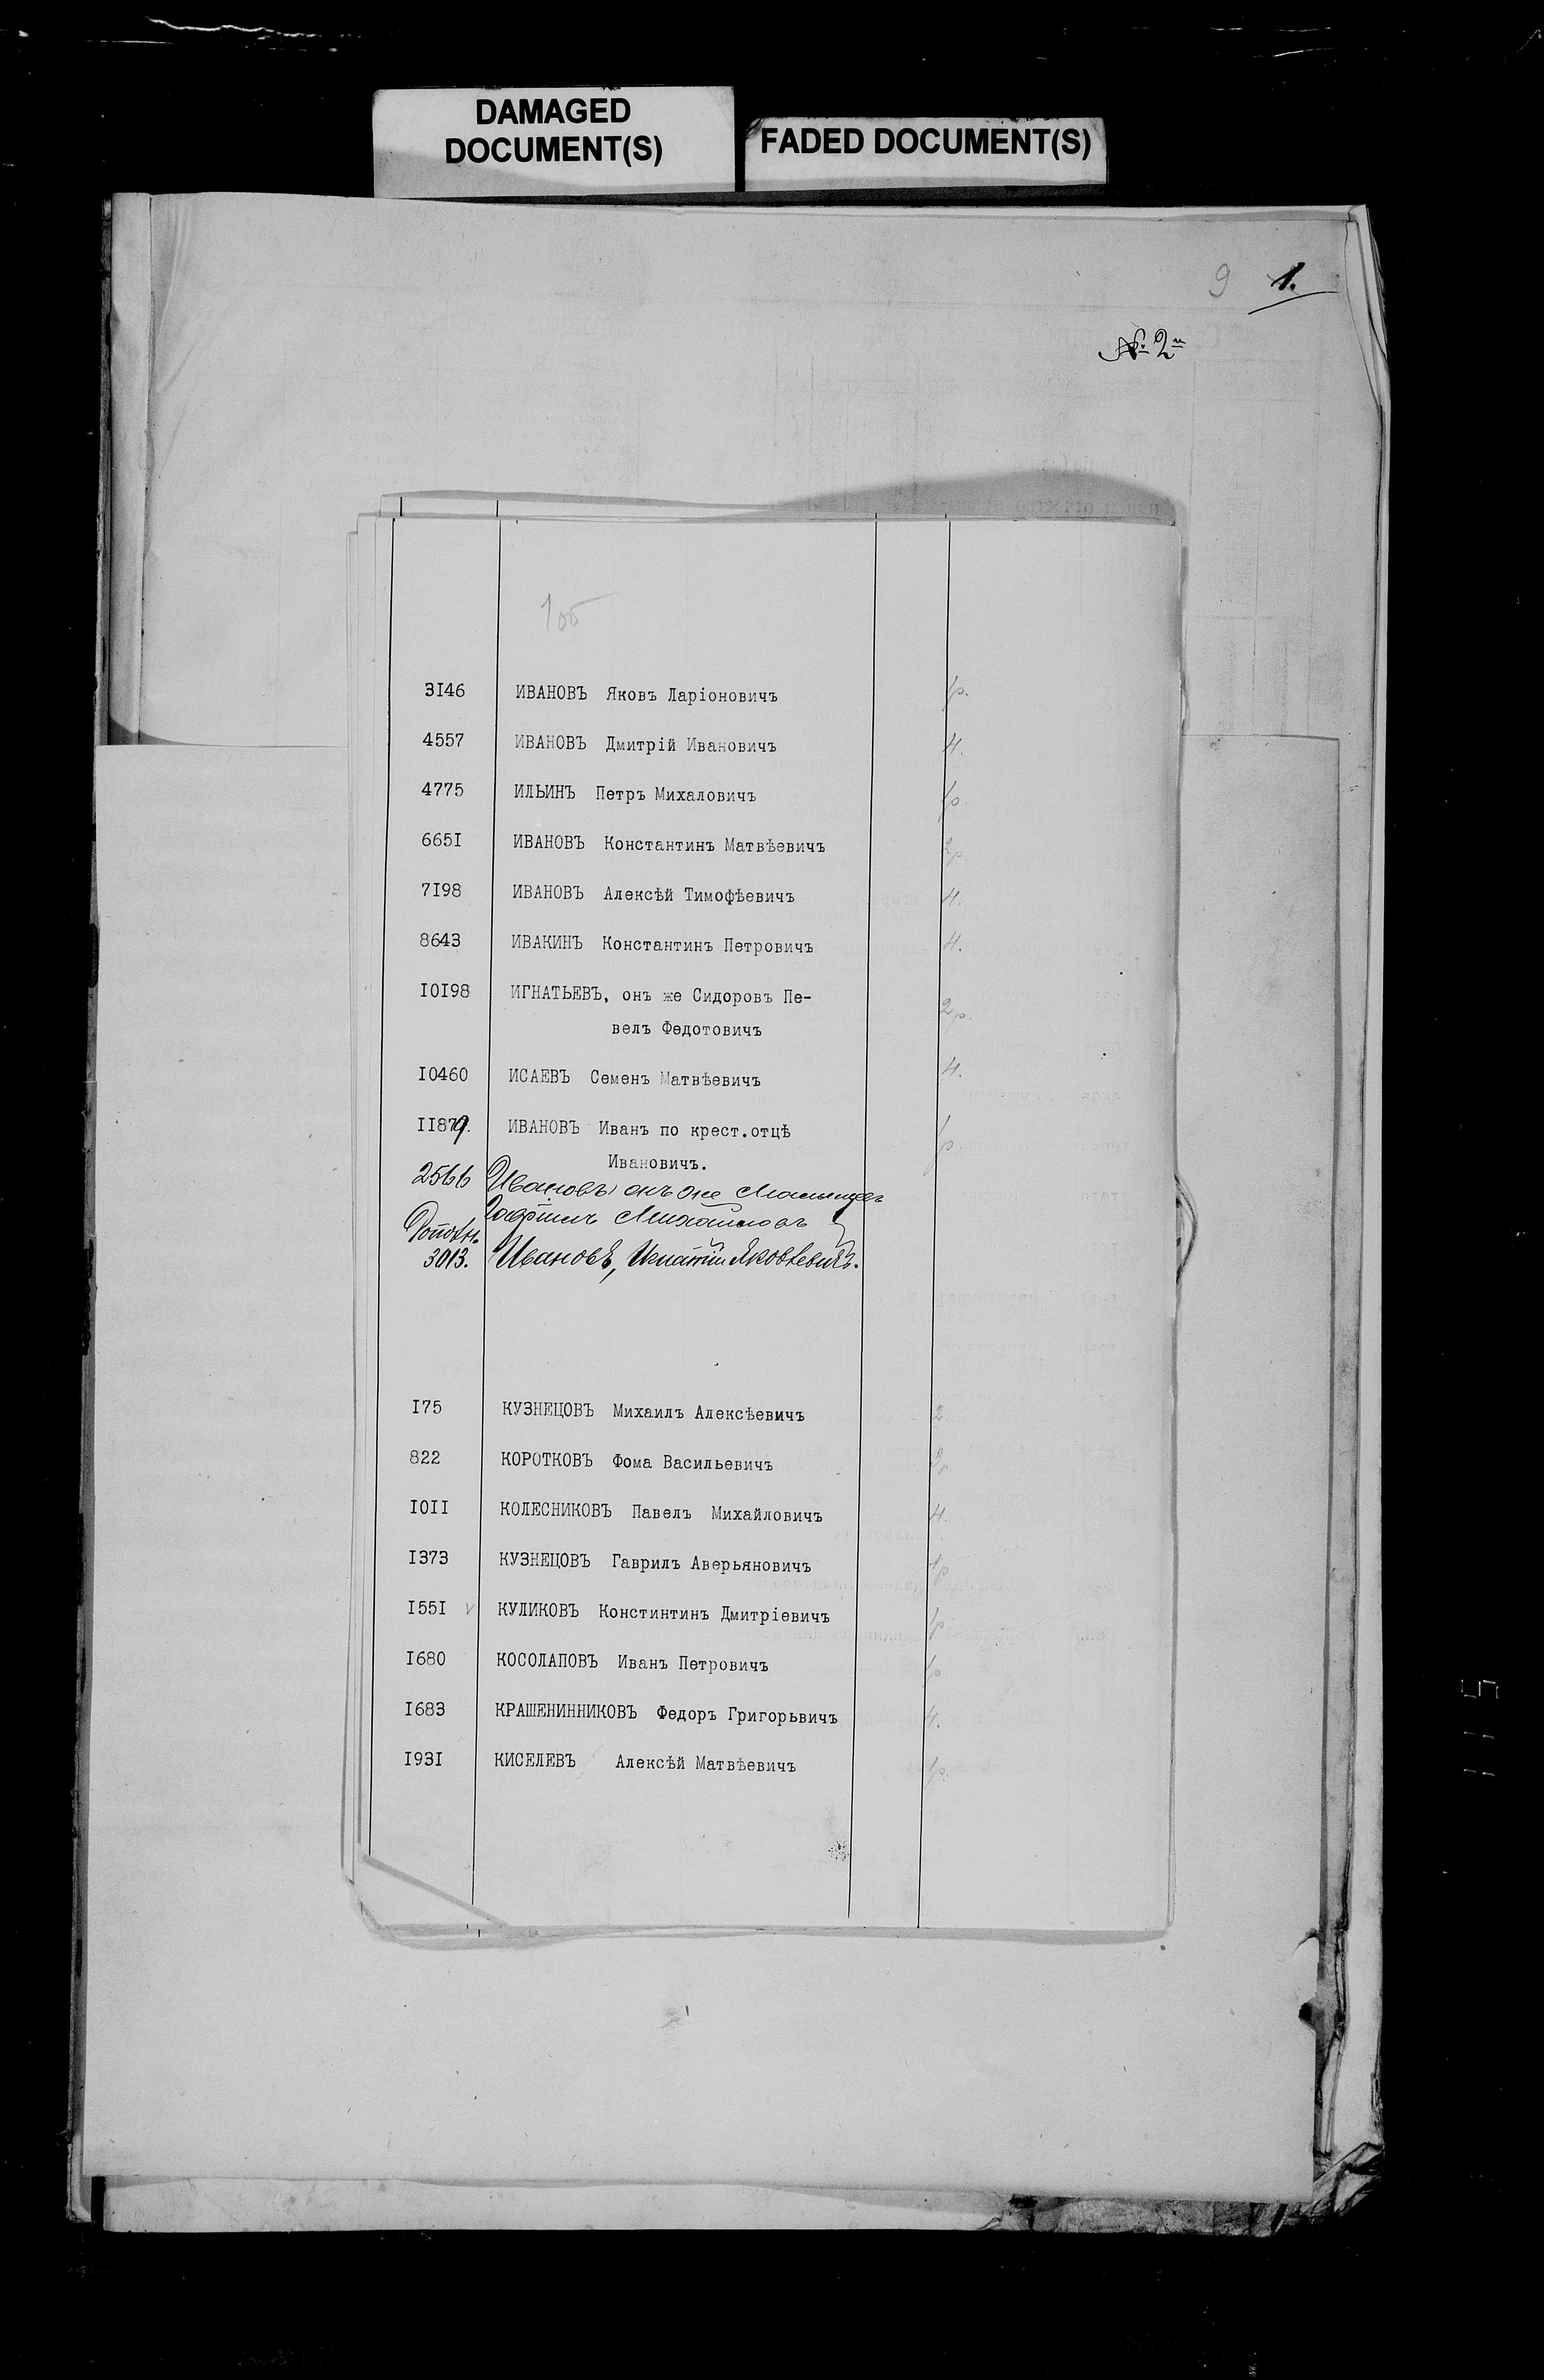 DAMAGED
DOCUMENT(S)
FADED DOCUMENT(S)
9 1.
№ 2
3I46 ИВАНОВЪ Яковъ Ларіоновичъ 1р.
4557 ИВАНОВЪ Дмитрій Ивановичъ Н.
4775 ИЛЬИНЪ Петръ Михаловичъ 1р.
665I ИВАНОВЪ Константинъ Матвѣевичъ 2р.
7I98 ИВАНОВЪ Алексѣй Тимофѣевичъ Н.
8643 ИВАКИНЪ Константинъ Петровичъ Н.
I0I98 ИГНАТЬЕВЪ, онъ же Сидоровъ Пе-
велъ Федотовичъ 2р.
I0460 ИСАЕВЪ Семенъ Матвѣевичъ Н.
II879. ИВАНОВЪ Иванъ по крест.отцѣ 1р.
Ивановичъ.
2566 Ивановъ онъ же
Гавріилъ Михайловъ
3013. Ивановъ, Игнатій Яковлевичъ.
I75 КУЗНЕЦОВЪ Михаилъ Алексѣевичъ 2
822 КОРОТКОВЪ Фома Васильевичъ
I0II КОЛЕСНИКОВЪ Павелъ Михайловичъ Н.
I373 КУЗНЕЦОВЪ Гаврилъ Аверьяновичъ 1р
I55I КУЛИКОВЪ Констинтинъ Дмитріевичъ 1р
I680 КОСОЛАПОВЪ Иванъ Петровичъ 1р
I683 КРАШЕНИННИКОВЪ Федоръ Григорьвичъ Н.
I93I КИСЕЛЕВЪ Алексѣй Матвѣевичъ 1р.